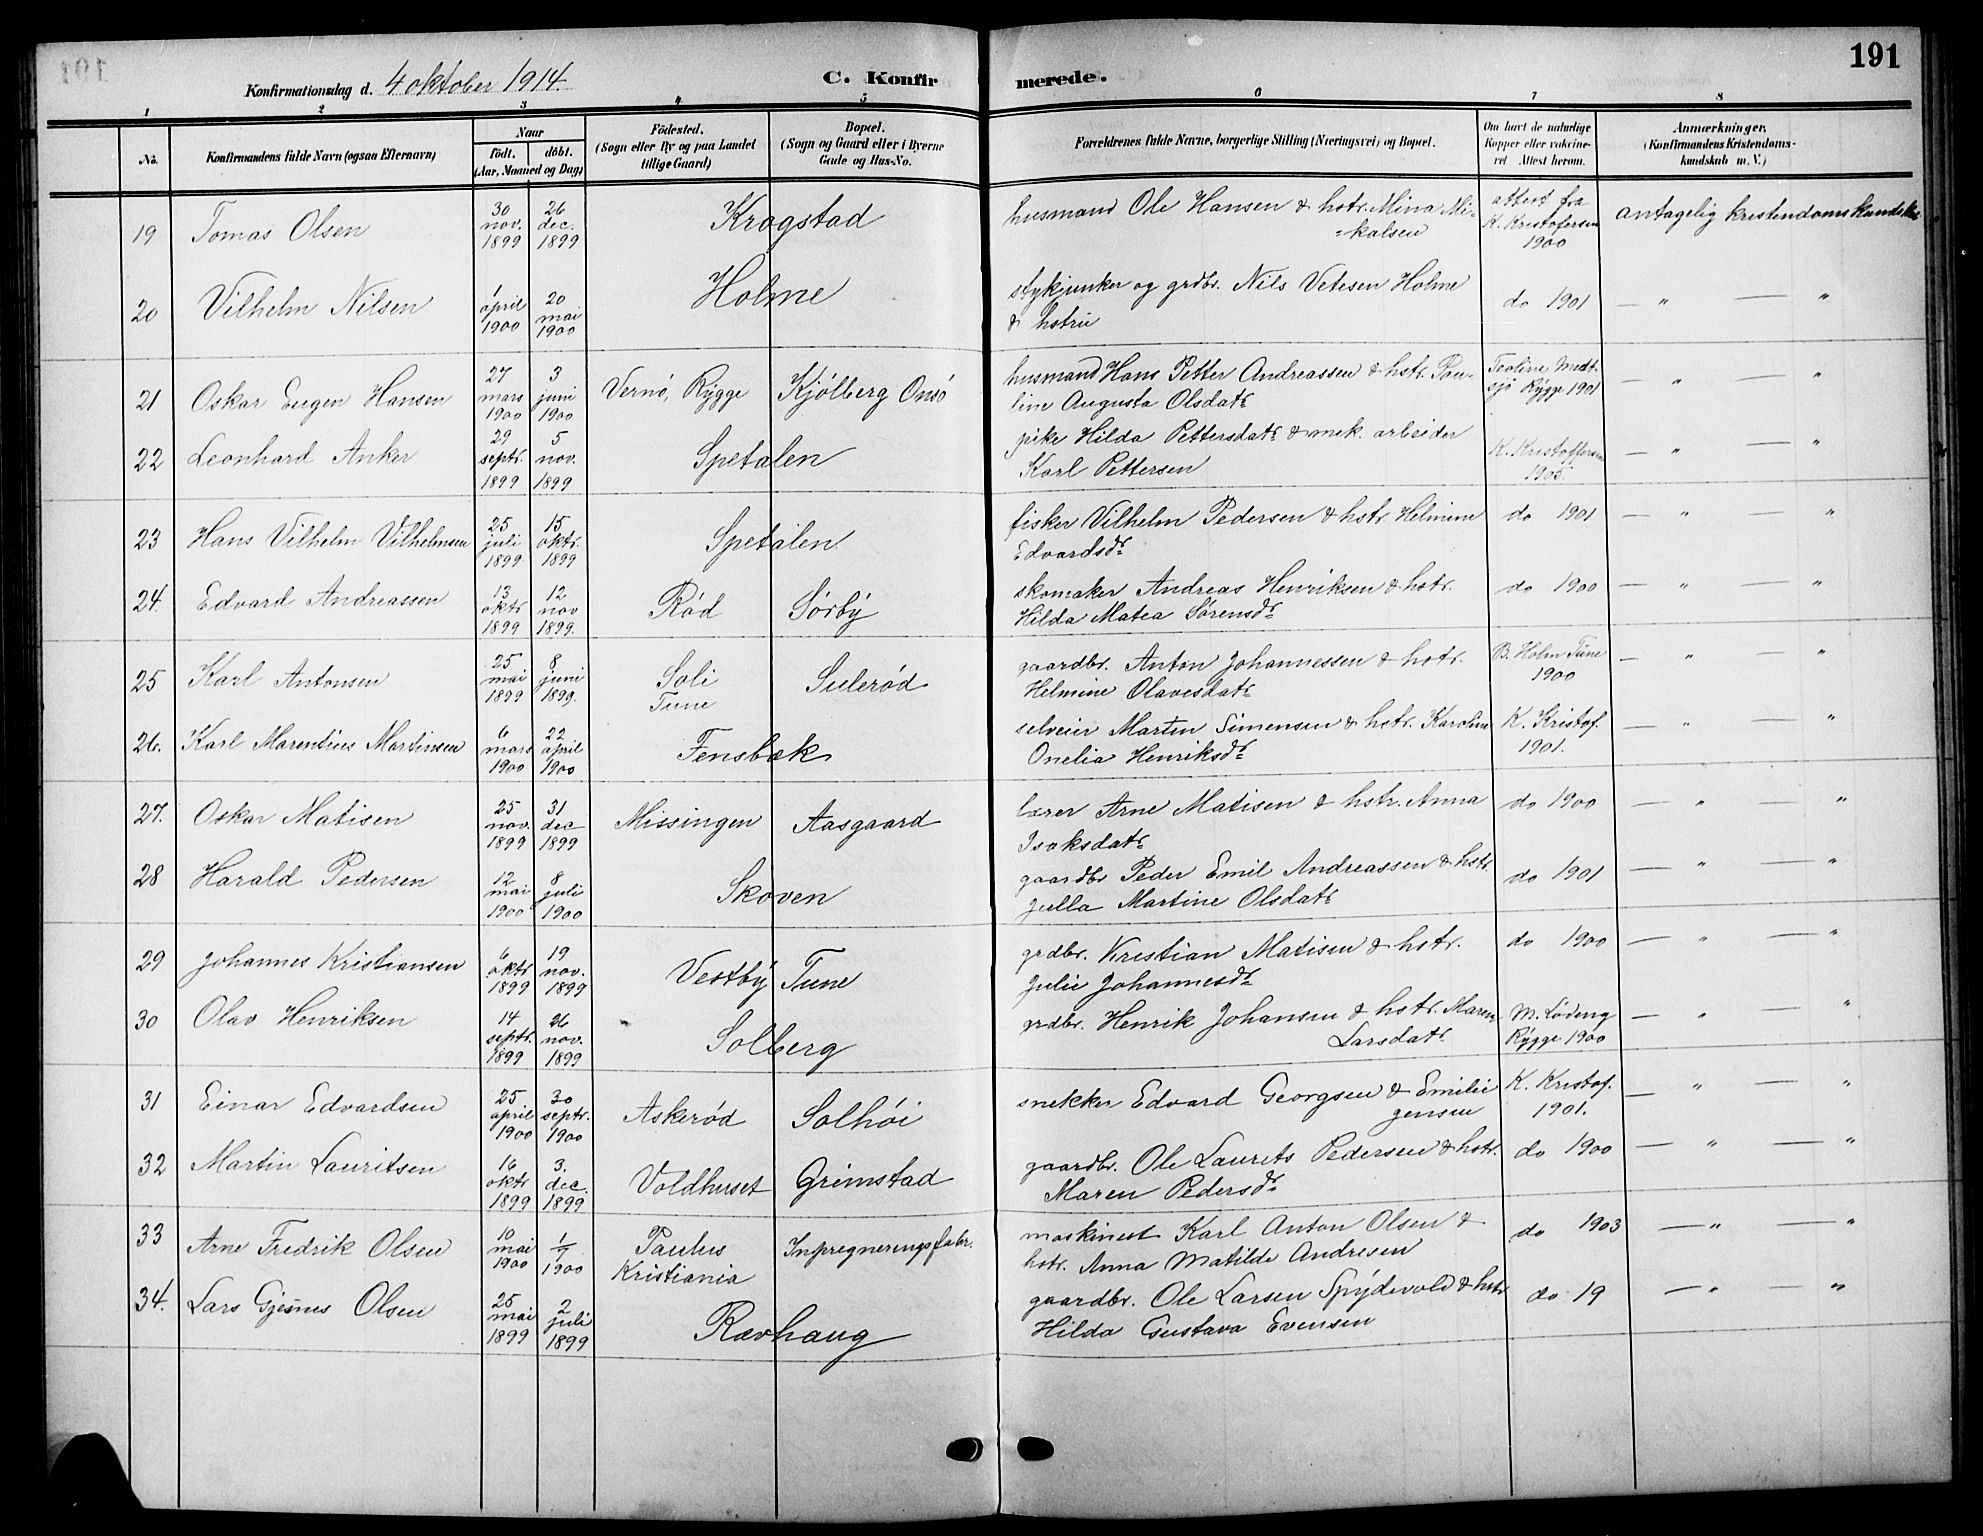 191
Konfirmationsdag d. 4 oktober 1914.
C. Konfirmerede.
1 2 3 4 5 6 7 8
No.
Konfirmandens fulde Navn (ogsaa Efternavn)
Naar
født. døbt.
(Aar, Maaned og Dag)
Födested.
(Sogn eller By og paa Landet
tillige Gaard)
Bopæl.
(Sogn og Gaard eller i Byerne
Gade og Hus-No.
Forældrenes fulde Navne, borgerlige Stilling (Næringsvei) og Bopæl.
Om havt de naturlige
Kopper eller vakcine-
ret Attest herom.
Anmærkninger.
(Konfirmandens Kristendoms-
kundskab m. V.)
19 Tomas Olsen 30 nov. 1899 26 dec. 1899 Krogstad husmand Ole Hansen & hstr. Mina Mi-
kalsen attest fra K. Kristofersen 1900 antagelig kristendomskundskab
20 Vilhelm Nilsen 1 april 1900 20 mai 1900 Holme stykjunker og grdbr. Nils Vetesen Holme
& hstru do 1901 — " — "
21 Oskar Eugen Hansen 27 mars 1900 3 juni 1900 Vernö, Rygge Kjölberg Onsö husmand Hans Petter Andreassen & hstr. Pau-
line Augusta Olsdatr Teoline Medt-
sjö Rygge 1901 — " — "
22 Leonhard Anker 29 septr. 1899 5 nov. 1899 Spetalen pike Hilda Pettersdatr & anek. arbeider
Karl Pettersen K. Kristoffersen 1905. — " — "
23 Hans Vilhelm Vilhelmsen 25 juli 1899 15 oktr. 1899 Spetalen fisker Vilhelm Pedersen & hstr Helmine
Edvardsdr do 1901 — " — "
24. Edvard Andreassen 13 oktr 1899 12 nov 1899. Röd Sörby skomaker Andreas Henriksen & hstr.
Hilda Matea Sørensdr do 1900 — " — "
25 Karl Antonsen 25 mai 1899 8 juni 1899. Soli
Tune Sulerød gaardbr. Anton Johannessen & hstr.
Helmine Olavesdatr B. Holm Tune
1900 — " — "
26. Karl Marentius Martinsen 6 mars 1900 22 april 1900 Fensbæk selveier Martin Simensen & hstr. Karoline
Onelia Henriksdr K. Kristof.
1901. — " — "
27. Oskar Matisen 25 nov. 1899 31 dec 1899 Missingen Aasgaard lærer Arne Matisen & hstr. Anna
Isaksdatr do 1900 — " — "
28 Harald Pedersen 12 mai 1900 8 juli 1900 Skoven gaardbr Peder Emil Andreassen & hstr.
Julla Martine Olsdatr do 1901 — " — "
29 Johannes Kristiansen 6 oktr 1899 19 nov. 1899 Vestby Tune grdbr. Kristian Matisen & hstr.
Julie Johannesdr do 1900 — " — "
30 Olav Henriksen 14 septr. 1899 26 nov. 1899 Solberg grdbr. Henrik Johansen & hstr. Maren
Larsdatr M. Lödeng
Rygge 1900 — " — "
31 Einar Edvardsen 25 april 1900 30 septr. 1900 Askeröd Solhöi snekker Edvard Georgsen & Emilie
Jensen K. Kristof.
1901. — " — "
32 Martin Lauritsen 16 oktr 1899 3. dec. 1899 Voldhuset Grimstad gaardbr. Ole Laurits Pedersen & hstr.
Maren Pedersdr do 1900 — " — "
33 Arne Fredrik Olsen 10 mai 1900 1/7 1900 Paulus
Kristiania Inpregneringsfabr. maskinist Karl Anton Olsen &
hstr. Anna Matilde Andresen do 1903 — " — "
34. Lars Gjesnes Olsen 25 mai 1899 2 juli 1899 Rævhaug gaardbr. Ole Larsen Spydevold & hstr
Hilda Gustava Evensen do 19 — " — "